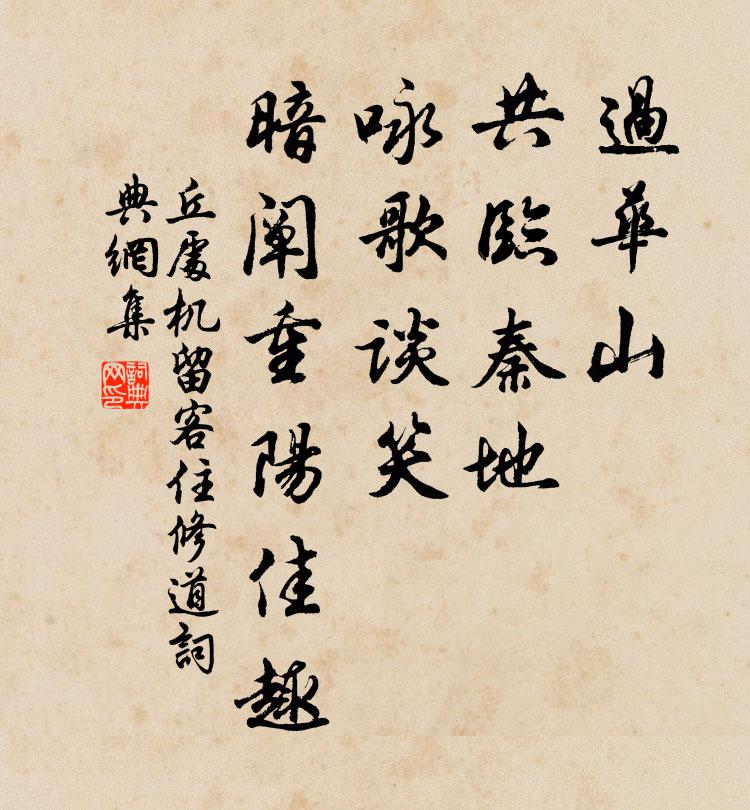 過華山
共臨秦地
咏歌談笑
暗闡重陽佳趣
丘處机留客住修道詞
典網集
詞典网印